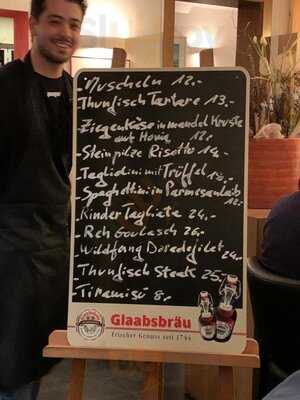 - Muscheln 12.-
- Thunfisch Tartare 13.-
- Ziegenkäse in mandel Kruste
auf Honig 12.-
- Steinpilze Risotto 19.-
- Tagliolini mit Trüffel 18.-
- Spaghettini in Parmesanlaib
12.-
- Kinder Tagliata 24.-
- Reh Goulasch 26.-
- Wildfang Doradefilet 24.-
- Thunfisch Steak 25.-
- Tiramisú 8.-
Glaabsbräu
Frischer Genuss seit 1744